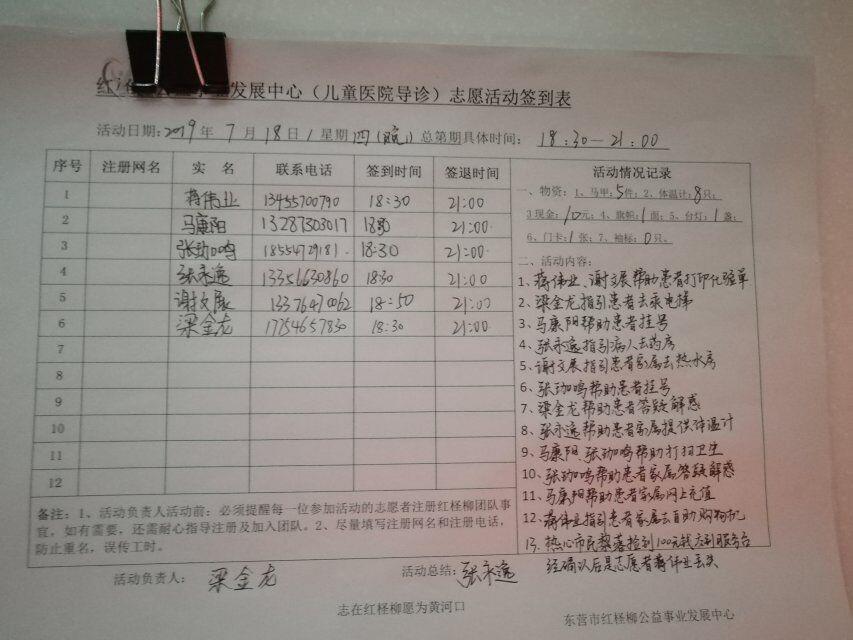 发展中心（儿童医院导诊）志愿活动签到表
活动日期：2019年7月18日/星期四(晚)总第期具体时间：18:30—21:00
序号 注册网名 实 名 联系电话 签到时间 签退时间 活动情况记录
1 蒋伟业 13455700790 18:30 21:00
2 马康阳 13287303017 18:30 21:00
3 张珈鸣 18554729181 18:30 21:00
4 张永逸 13356630860 18:30 21:00
5 谢文展 13376470062 18:50 21:00
6 梁金龙 17754657830 18:30 21:00
7
8
9
10
11
12
一、物资：1、马甲：5件；2、体温计：8只；
3现金：10元；4、旗帜：1面；5、台灯：1盏；
6、门卡：1张；7、袖标：0只。
二、活动内容：
1、蒋伟业、谢文展帮助患者打印化验单
2、梁金龙指引患者去乘电梯
3、马康阳帮助患者挂号
4、张永逸指引病人去药房
5、谢文展指引患者家属去热水房
6、张珈鸣帮助患者挂号
7、梁金龙帮助患者答疑解惑
8、张永逸帮助患者家属提供体温计
9、马康阳、张珈鸣帮助打扫卫生
10、张珈鸣帮助患者家属答疑解惑
11、马康阳帮助患者家属网上充值
12、蒋伟业指引患者家属去自助购物机
13、热心市民黎落捡到100元钱交到服务台
经确认后是志愿者蒋伟业丢失
备注：1、活动负责人活动前：必须提醒每一位参加活动的志愿者注册红柽柳团队事
宜，如有需要，还需耐心指导注册及加入团队。2、尽量填写注册网名和注册电话，
防止重名，误传工时。
活动负责人：梁金龙 活动总结：张永逸
志在红柽柳愿为黄河口 东营市红柽柳公益事业发展中心